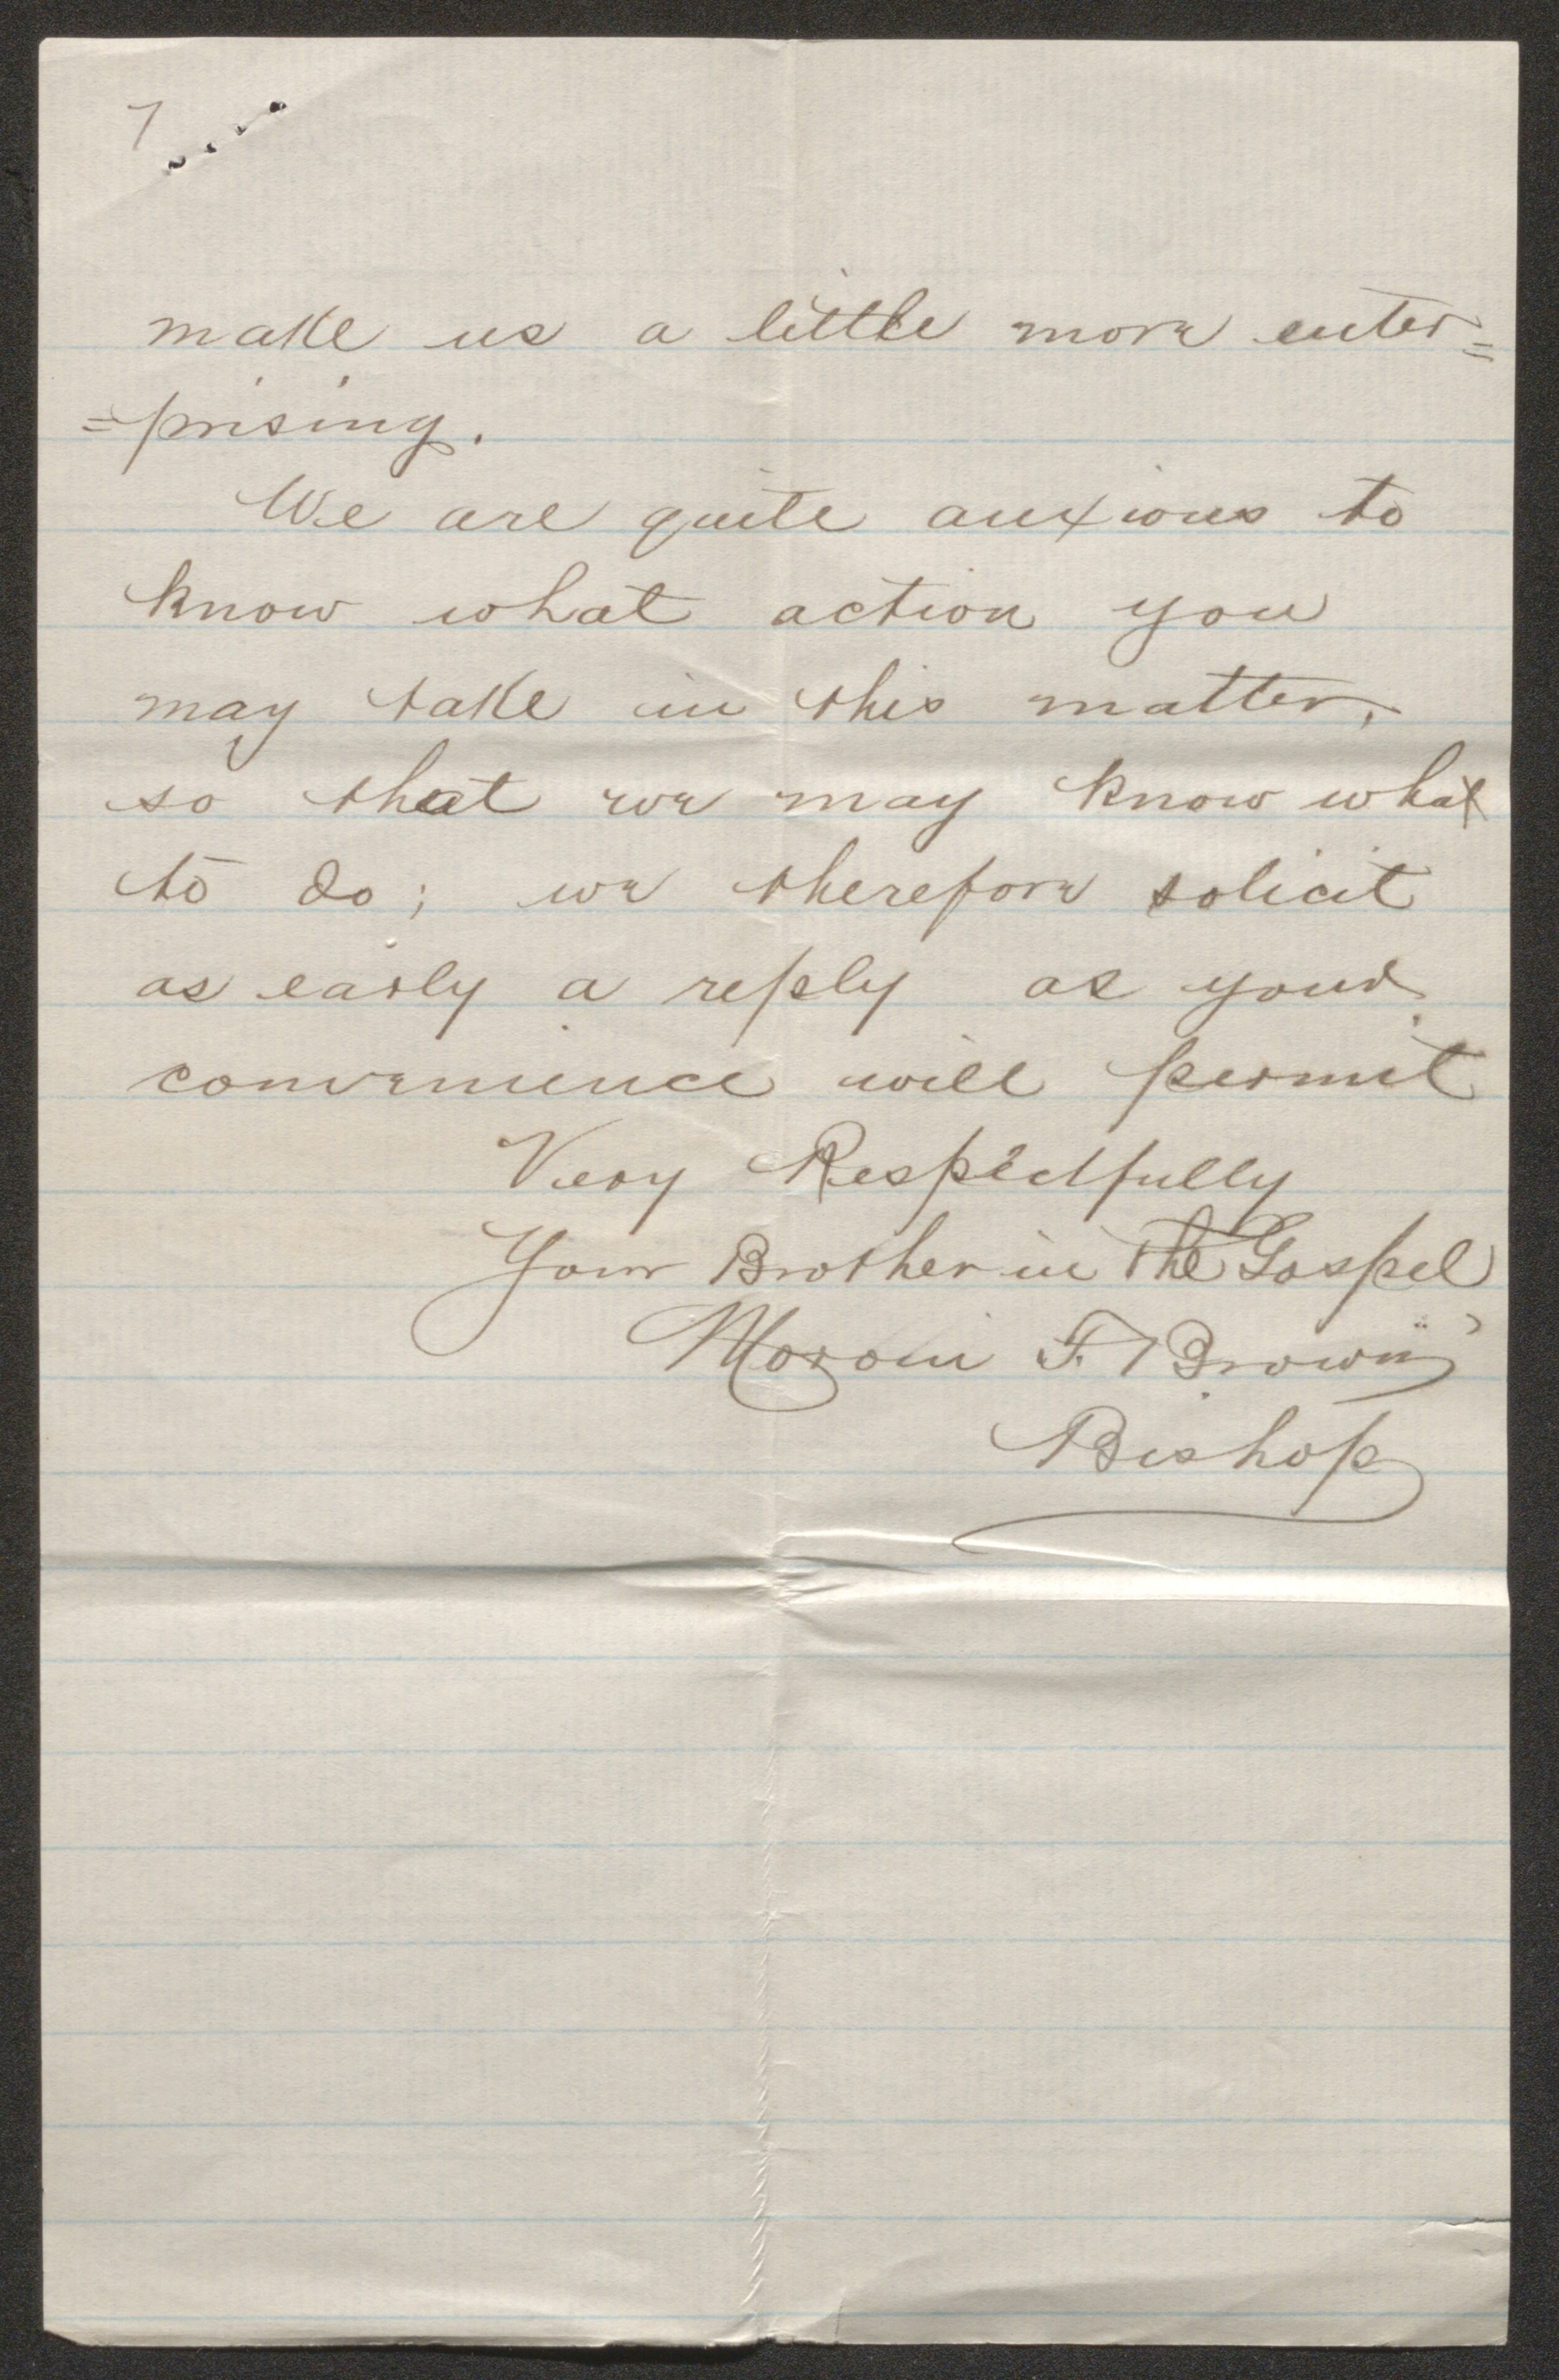 7
make us a little more enter=
=prising.
We are quite anxious to
know what action you
may take in this matter,
so that we may know what
to do; we therefore solicit
as early a reply as your
convenience will permit
Very Respectfully
Your Brother in the Gospel
Moroni F. Brown
Bishop